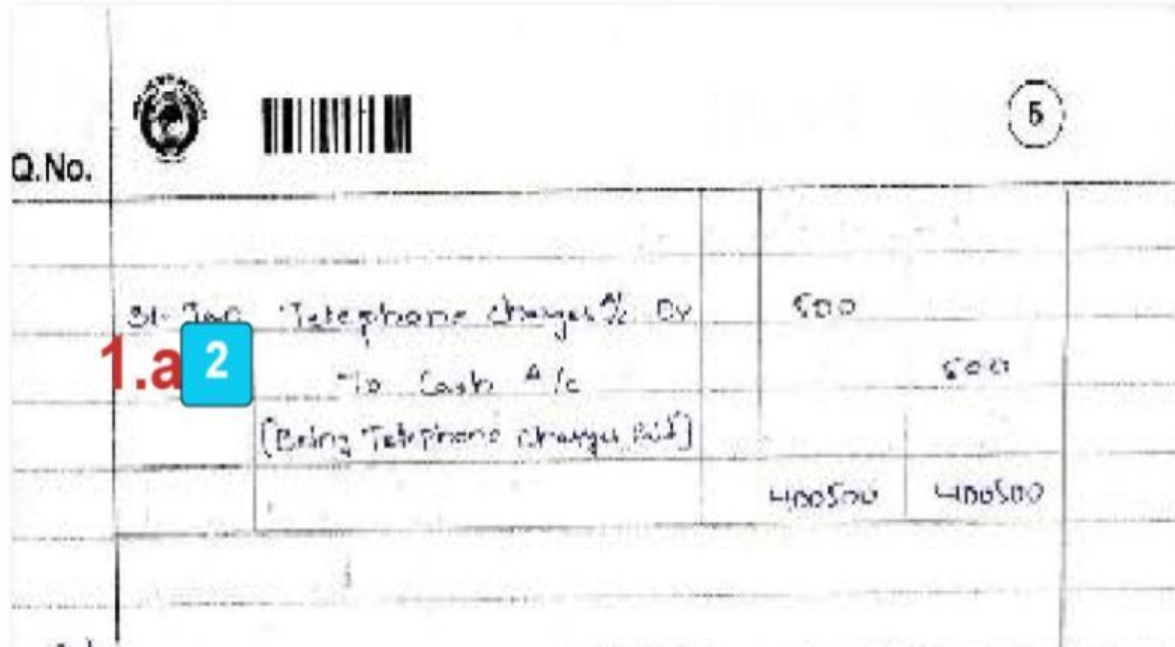 5
Q.No.
31-Jan Telephone charges A/c Dr 500
1.a 2
To Cash A/c 500
[Being Telephone charges Paid]
400500 400500